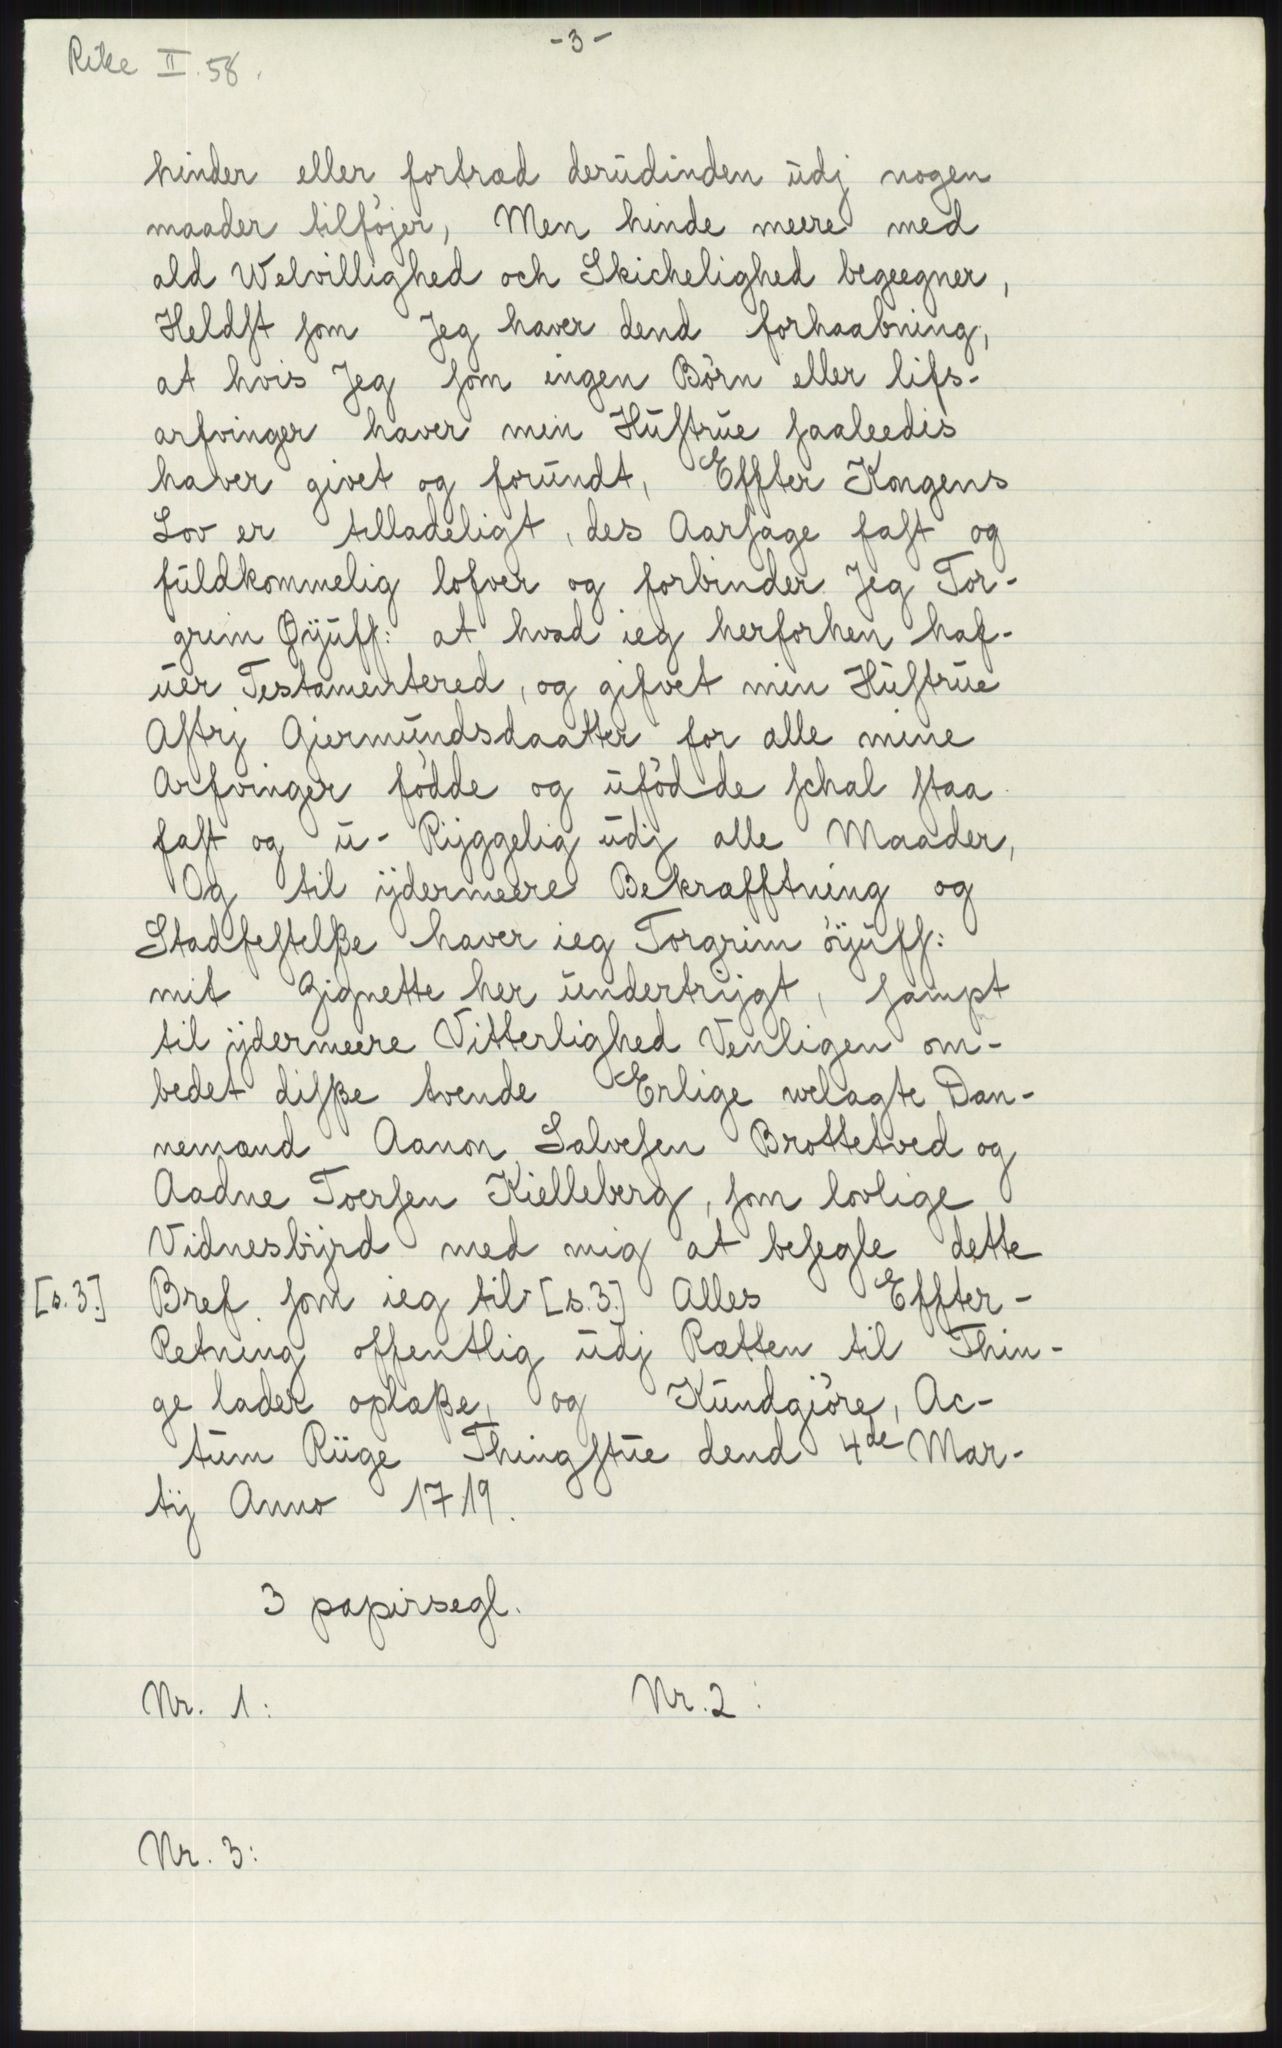 -3-
Rike II. 58.
hinder eller fortræd derudinden udj nogen
maader tilföjer, Men hinde meere med
ald Welvillighed och Skichelighed begeegner,
Heldſt ſom Jeg haver dend forhaabning,
at hvis Jeg ſom ingen Börn eller lifs-
arfvinger haver min Huſtrue ſaaleedis
haver givet og forundt, Effter Kongens
Lov er tilladeligt, des Aarſage faſt og
fuldkommelig lofver og forbinder Jeg Tor-
grim Øÿuff: at hvad ieg herforhen haf-
uer Testamentered, og gifvet min Huſtrue
Aſtrj Giermundsdaatter for alle mine
Arfvinger födde og ufödde ſchal ſtaa
faſt og u-Rijggelig udj alle Maader,
Og til ijdermeere Bekræfftning og
Stadfeſtelße haver ieg Torgrim öÿuff:
mit Zignette her undertrijgt, ſampt
til ijdermeere Vitterlighed Venligen om-
bedet diſße tvende Erlige welagte Dan-
nemænd Aanon Salveſen Brottetved og
Aadne Toerſen Kielleberg, ſom lovlige
Vidnesbijrd med mig at beſegle dette
[s.3.] Bref ſom ieg til [s.3.] Alles Effter-
Retning offentlig udj Rætten til Thin-
ge lader oplæße, og Kundgiöre, Ac-
tum Riige Thingſtue dend 4de Mar-
tij Anno 1719.
3 papirsegl.
Nr. 1: Nr. 2:
Nr. 3: